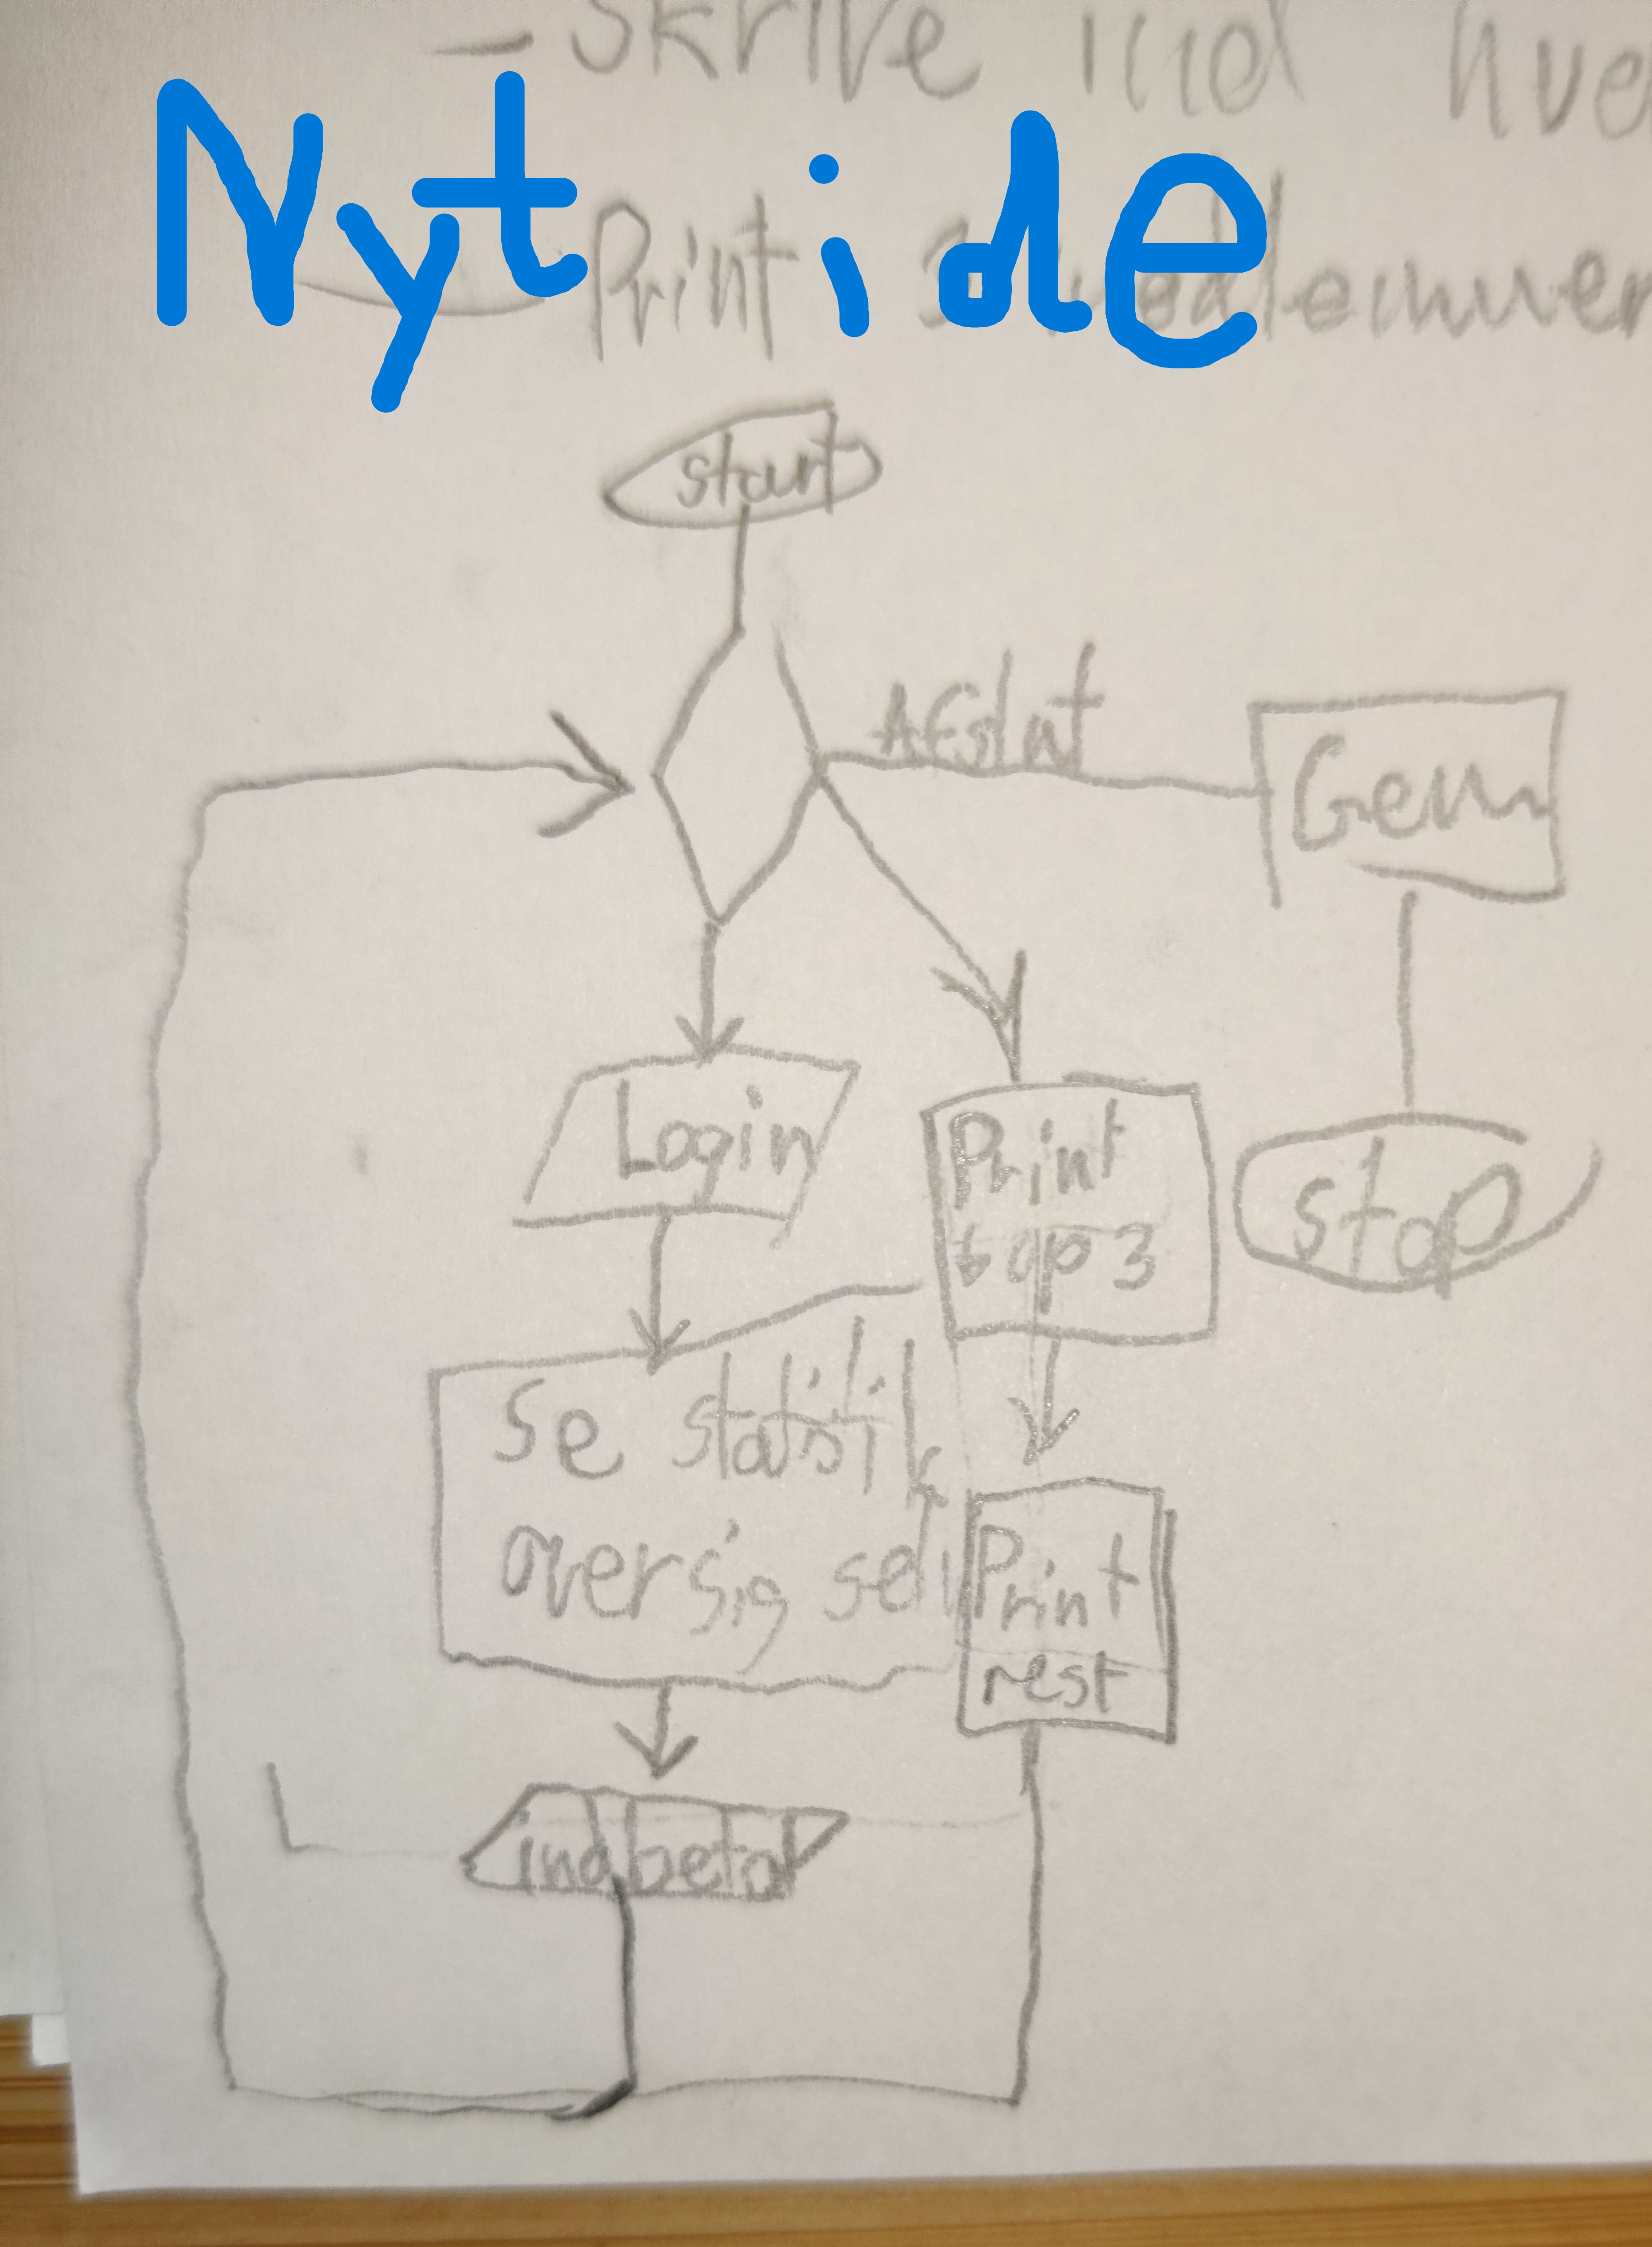 - Skrive ind
Nyt ide
Print 3
start
AFslut
Gem
Login
Print
top 3
stop
Se statistik
oversig
Print
rest
indbetal